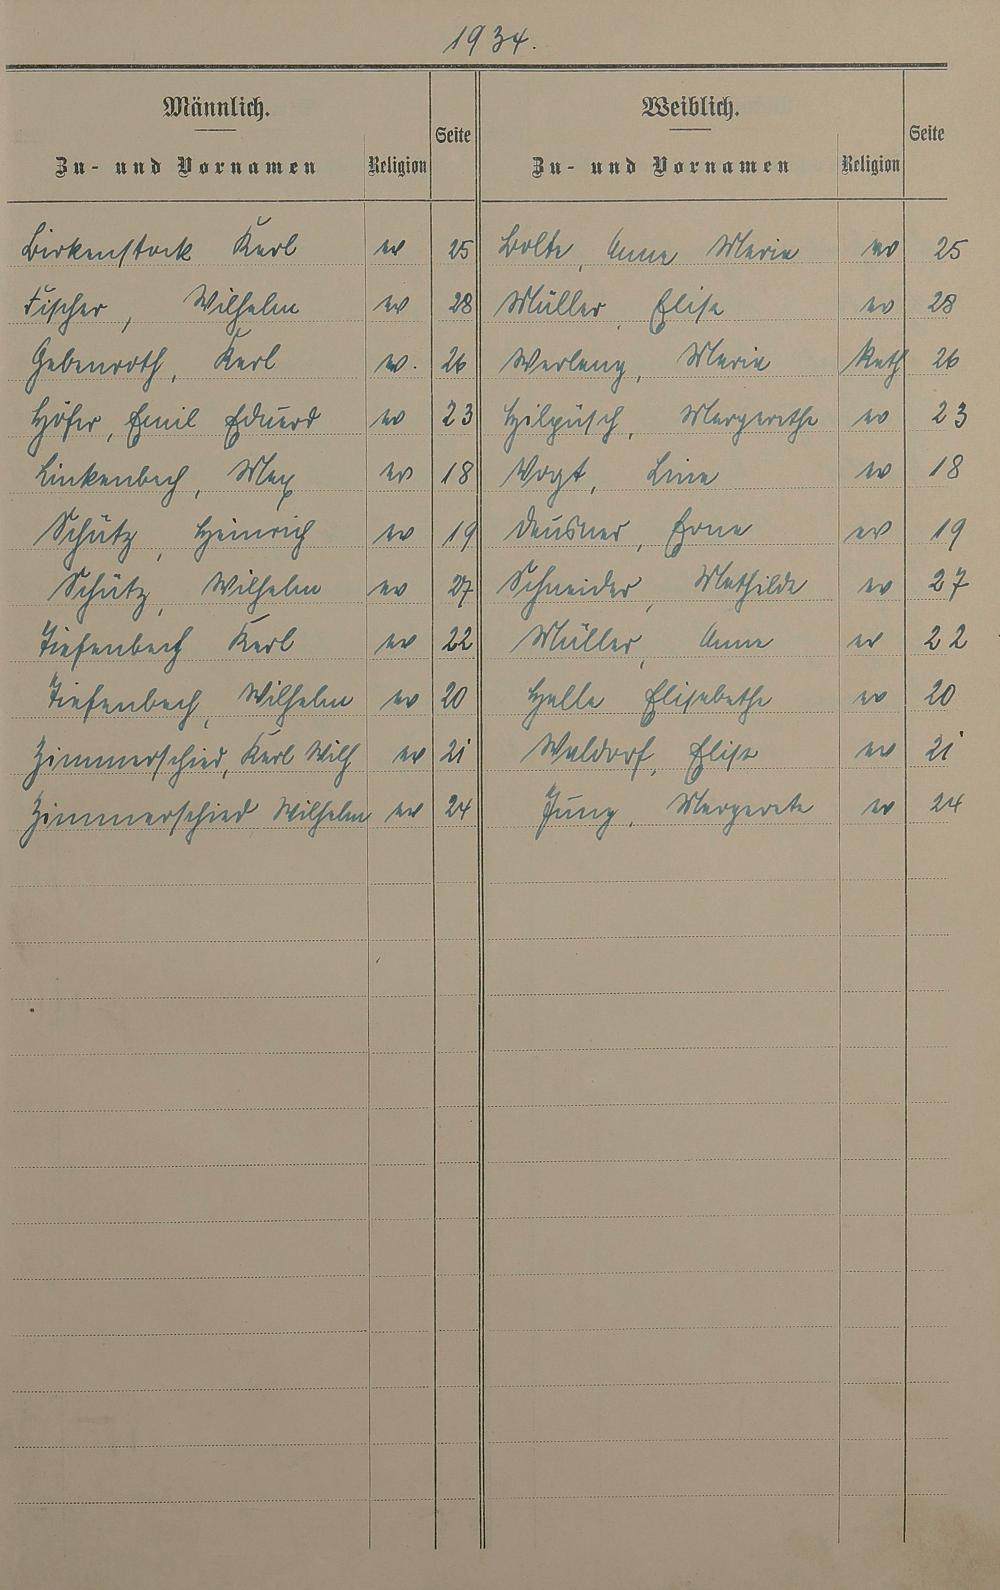 1934.
Männlich. Weiblich.
Zu- und Vornamen Religion Seite Zu- und Vornamen Religion Seite
Birkenstock Karl ev 25 Bolte, Anna Maria ev 25
Fischer, Wilhelm ev 28 Müller, Elisa 28 ev
Gebenroth, Karl ev. 26 Werlang, Maria Kath 26
Höfer, Emil Eduard ev 23 Hilpüsch, Margarethe ev 23
Linkenbach, Max ev 18 Vogt, Lina ev 18
Schütz, Heinrich ev 19 Deusner, Erna ev 19
Schütz, Wilhelm ev 27 Schneider, Mathilde ev 27
Tiefenbach Karl ev 22 Müller, Anna ev 22
Tiefenbach, Wilhelm ev 20 Halle Elisabetha ev 20
Zimmerschied, Karl Wilh ev 21 Waldorf, Elise ev 21
Zimmerschied Wilhelm ev 24 Jung, Margarete ev 24